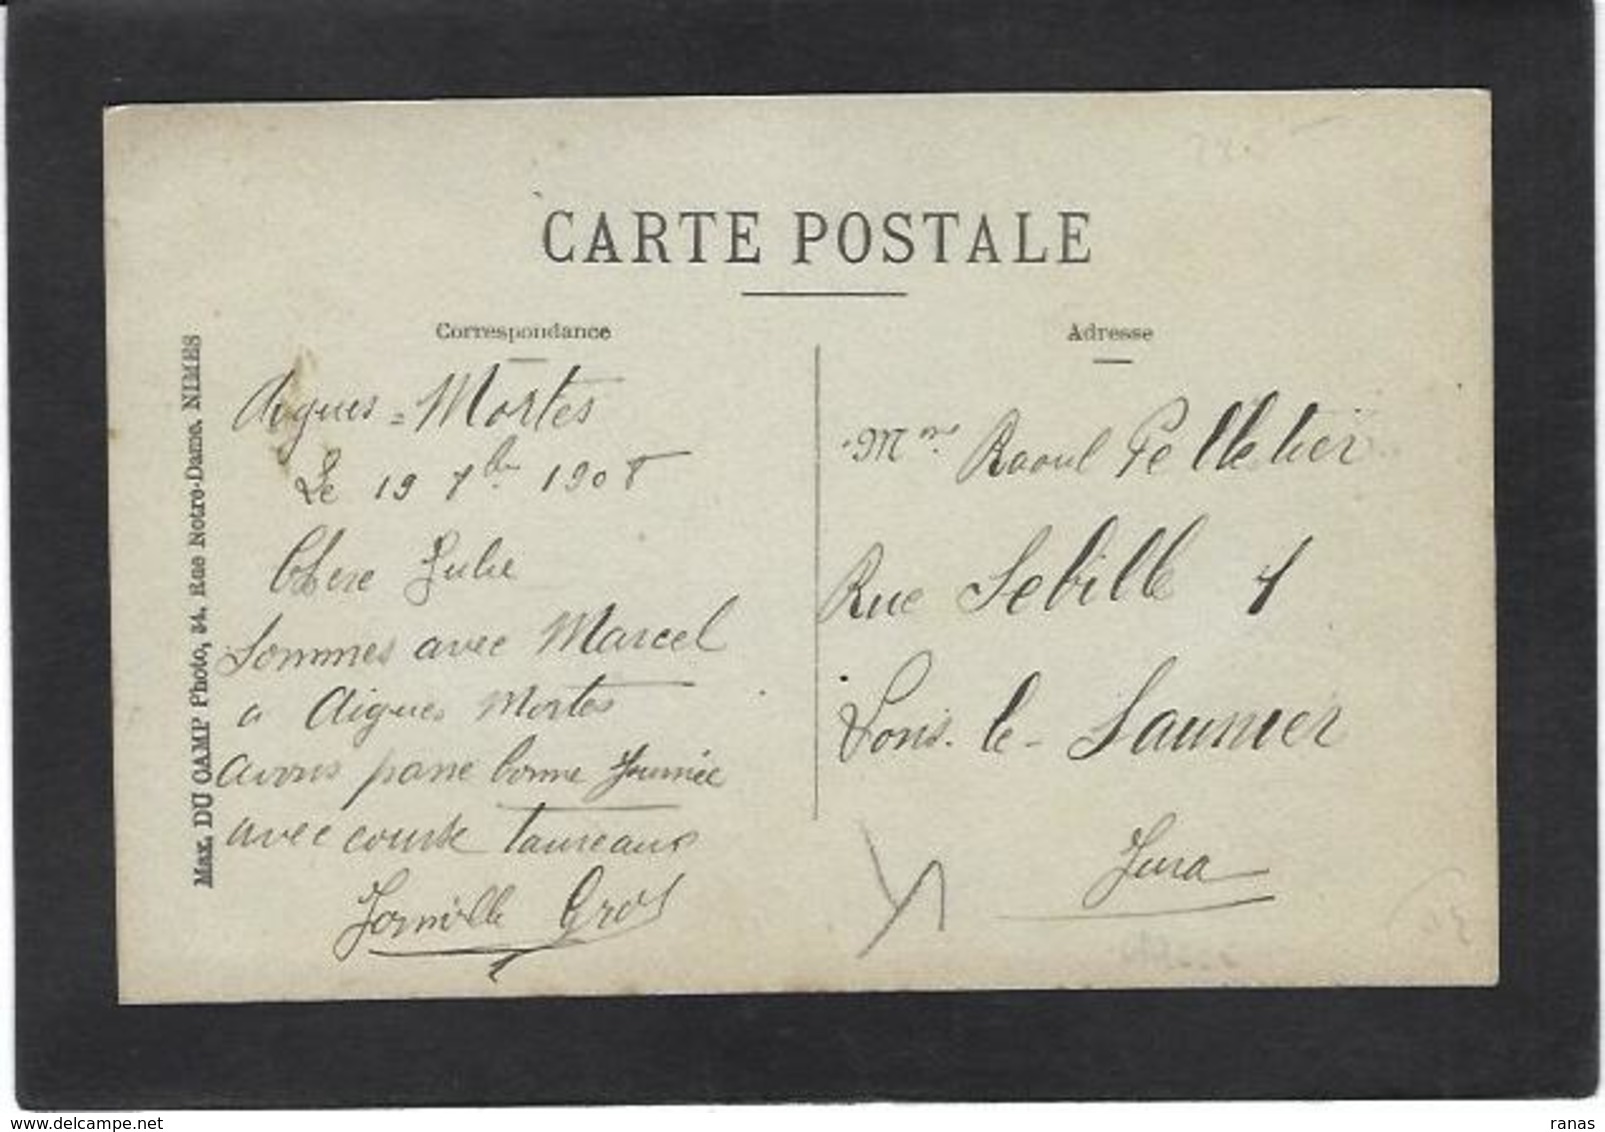 CARTE POSTALE
Correspondance
Adresse
Max. DU CAMP Photo, 34, Rue Notre-Dame, NIMES
Aigues-Mortes
Le 19 7bre 1908
Chere Julie
Sommes avec Marcel
a Aigues Mortes
avons passe bonne Journée
avec course taureaux
Gros
Mme Raoul Pelletier
Rue Sebille 1
Lons-le-Saunier
Jura
www.delcampe.net
ranas